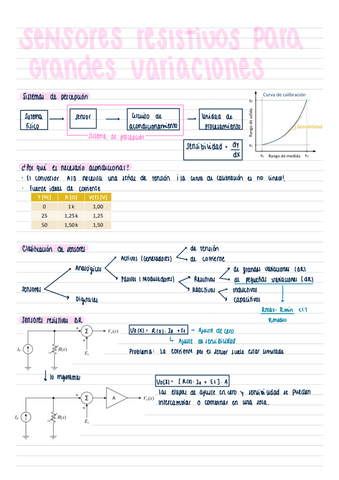 Sensores resistivos para
grandes variaciones
Sistemas de percepción
Sistema físico
Sensor
Circuito de acondicionamiento
Unidad de procesamiento
Sistema de percepción
Sensibilidad = dy/dx
Curva de calibración
Rango de salida
Sensibilidad
Rango de medida
¿Por qué es necesario acondicionar?
· El conversor A/D necesita una señal de tensión ¡ la curva de calibración es no lineal!
· Fuente ideal de corriente
T [ºC] R [Ω] V(T) [V]
0 1 k 1,00
25 1,25 k 1,25
50 1,50 k 1,50
Clasificación de sensores
Sensores
Analógicos
Digitales
Activos (Generadores)
Pasivos (Moduladores)
de tensión
de corriente
Resistivos
Reactivos
de grandes variaciones (ΔR)
de pequeñas variaciones (dR)
inductivos
capacitivos
Rmax - Rmin <<1
Rmedio
Sensores resistivos ΔR
I₀
R(x)
Σ
E₁
V₀(x)
V₀(x) = R(x) · I₀ + E₁
Ajuste de cero
Ajuste de sensibilidad
Problema: La corriente por el sensor suele estar limitada
lo mejoramos
I₀
R(x)
Σ
E₁
A
V₀(x)
V₀(x) = [R(x) · I₀ + E₁] · A
las etapas de ajuste en cero y sensibilidad se pueden
intercambiar o combinar en una sola.